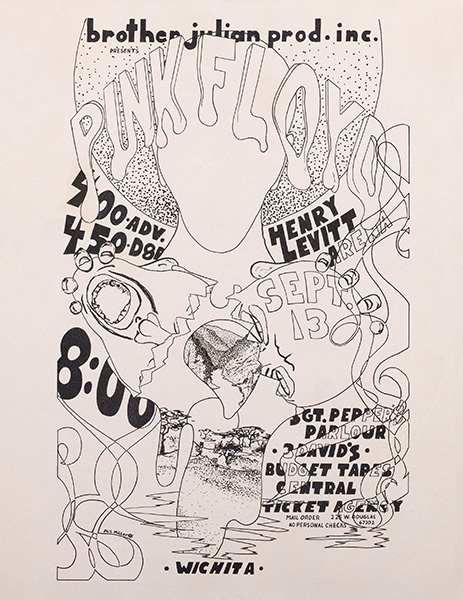 brother julian prod. inc.
PRESENTS
PINK FLOYD
400·ADV.
450·DOS
HENRY
LEVITT
ARENA
SEPT.
13
8:00
SGT. PEPPERS
PARLOUR
·3 DAVID'S·
BUDGET TAPES
CENTRAL
TICKET AGENCY
MAIL ORDER 225 W. DOUGLAS
NO PERSONAL CHECKS 67202
·WICHITA·